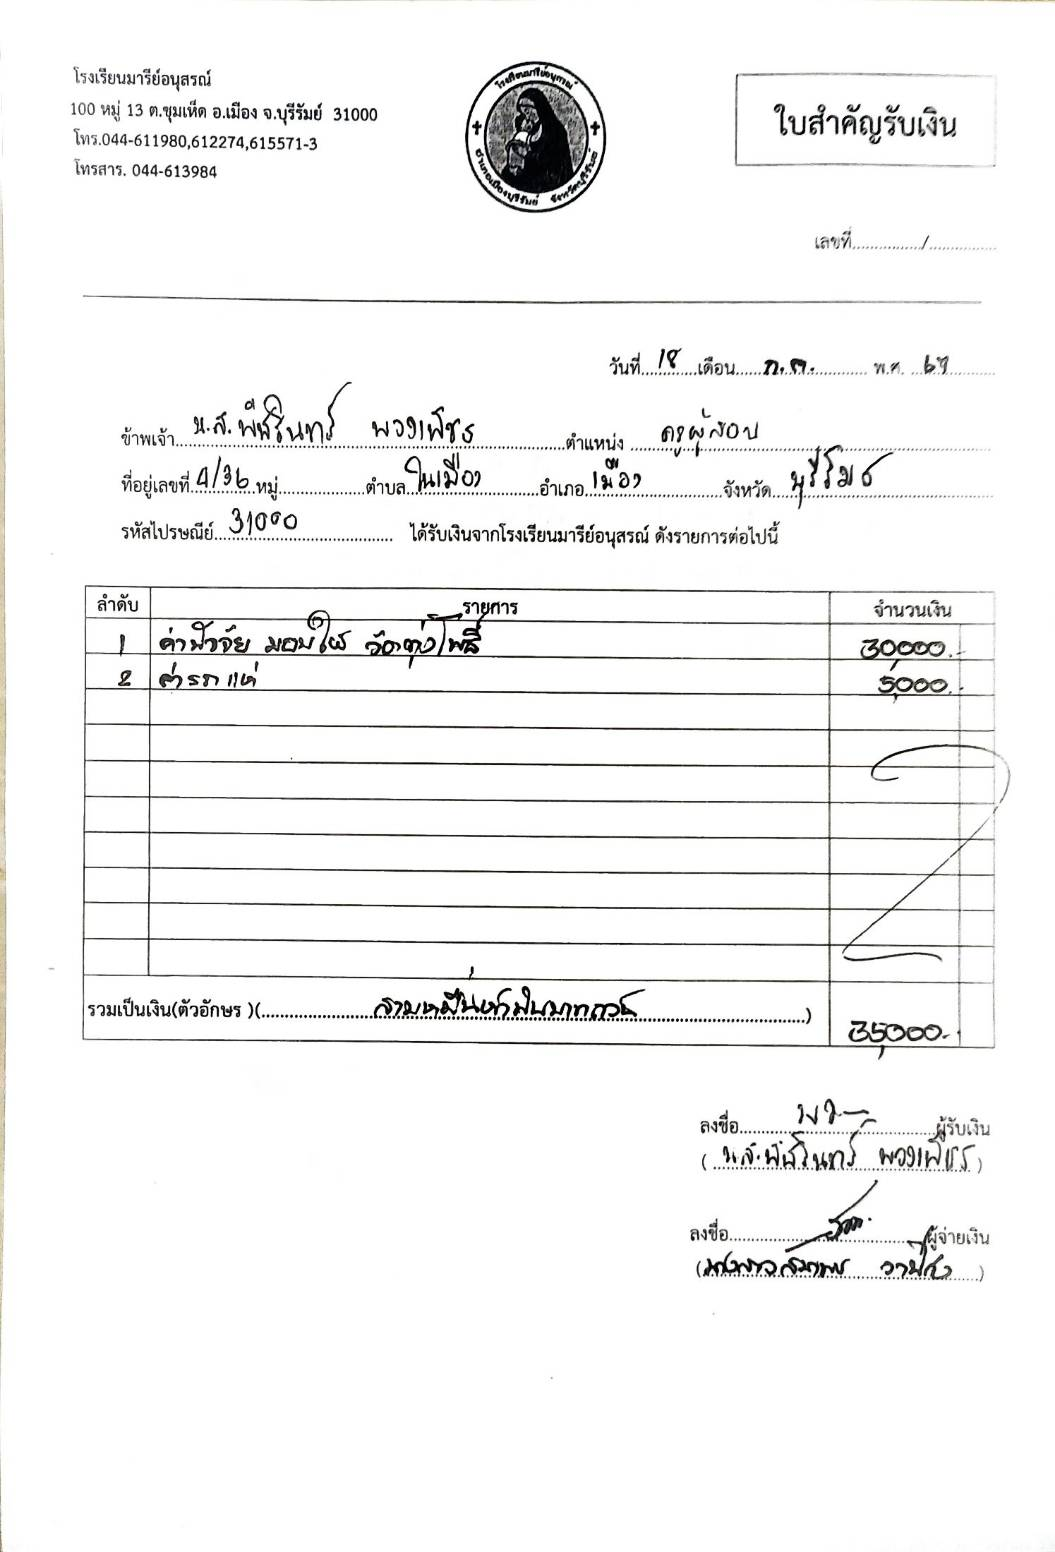 โรงเรียนมารีย์อนุสรณ์
100 หมู่ 13 ต.ชุมเห็ด อ.เมือง จ.บุรีรัมย์ 31000
โทร.044-611980,612274,615571-3
โทรสาร. 044-613984
โรงเรียนมารีย์อนุสรณ์
อำเภอเมืองบุรีรัมย์ จังหวัดบุรีรัมย์
ใบสำคัญรับเงิน
เลขที่................/................
วันที่ 18 เดือน ก.ค. พ.ศ. 67
ข้าพเจ้า น.ส. พวงเพ็ชร ตำแหน่ง ครูผู้สอน
ที่อยู่เลขที่ 9/36 หมู่................ตำบล ในเมือง อำเภอ เมือง จังหวัด บุรีรัมย์
รหัสไปรษณีย์ 31000 ได้รับเงินจากโรงเรียนมารีย์อนุสรณ์ ดังรายการต่อไปนี้
ลำดับ รายการ จำนวนเงิน
1 ค่าปัจจัย มอบให้ วัดทุ่งโพธิ์ 30,000.-
2 ค่ารถแห่ 5,000.-
รวมเป็นเงิน(ตัวอักษร )( สามหมื่นห้าพันบาทถ้วน ) 35,000.-
ลงชื่อ ผู้รับเงิน
( น.ส. พวงเพ็ชร )
ลงชื่อ ผู้จ่ายเงิน
( นางสาว )